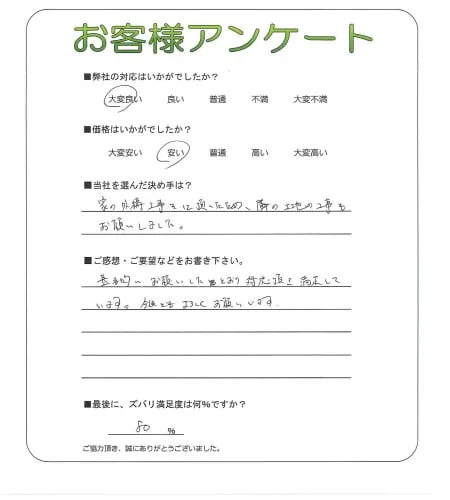 お客様アンケート
■弊社の対応はいかがでしたか？
大変良い 良い 普通 不満 大変不満
■価格はいかがでしたか？
大変安い 安い 普通 高い 大変高い
■当社を選んだ決め手は？
家の外構工事を に頂いたため、隣の土地の工事も
お願いしました。
■ご感想・ご要望などをお書き下さい。
基本的に お願いした とおり 対応頂き 満足して
います。今後とも よろしく お願いします。
■最後に、ズバリ満足度は何%ですか？
80 %
ご協力頂き、誠にありがとうございました。